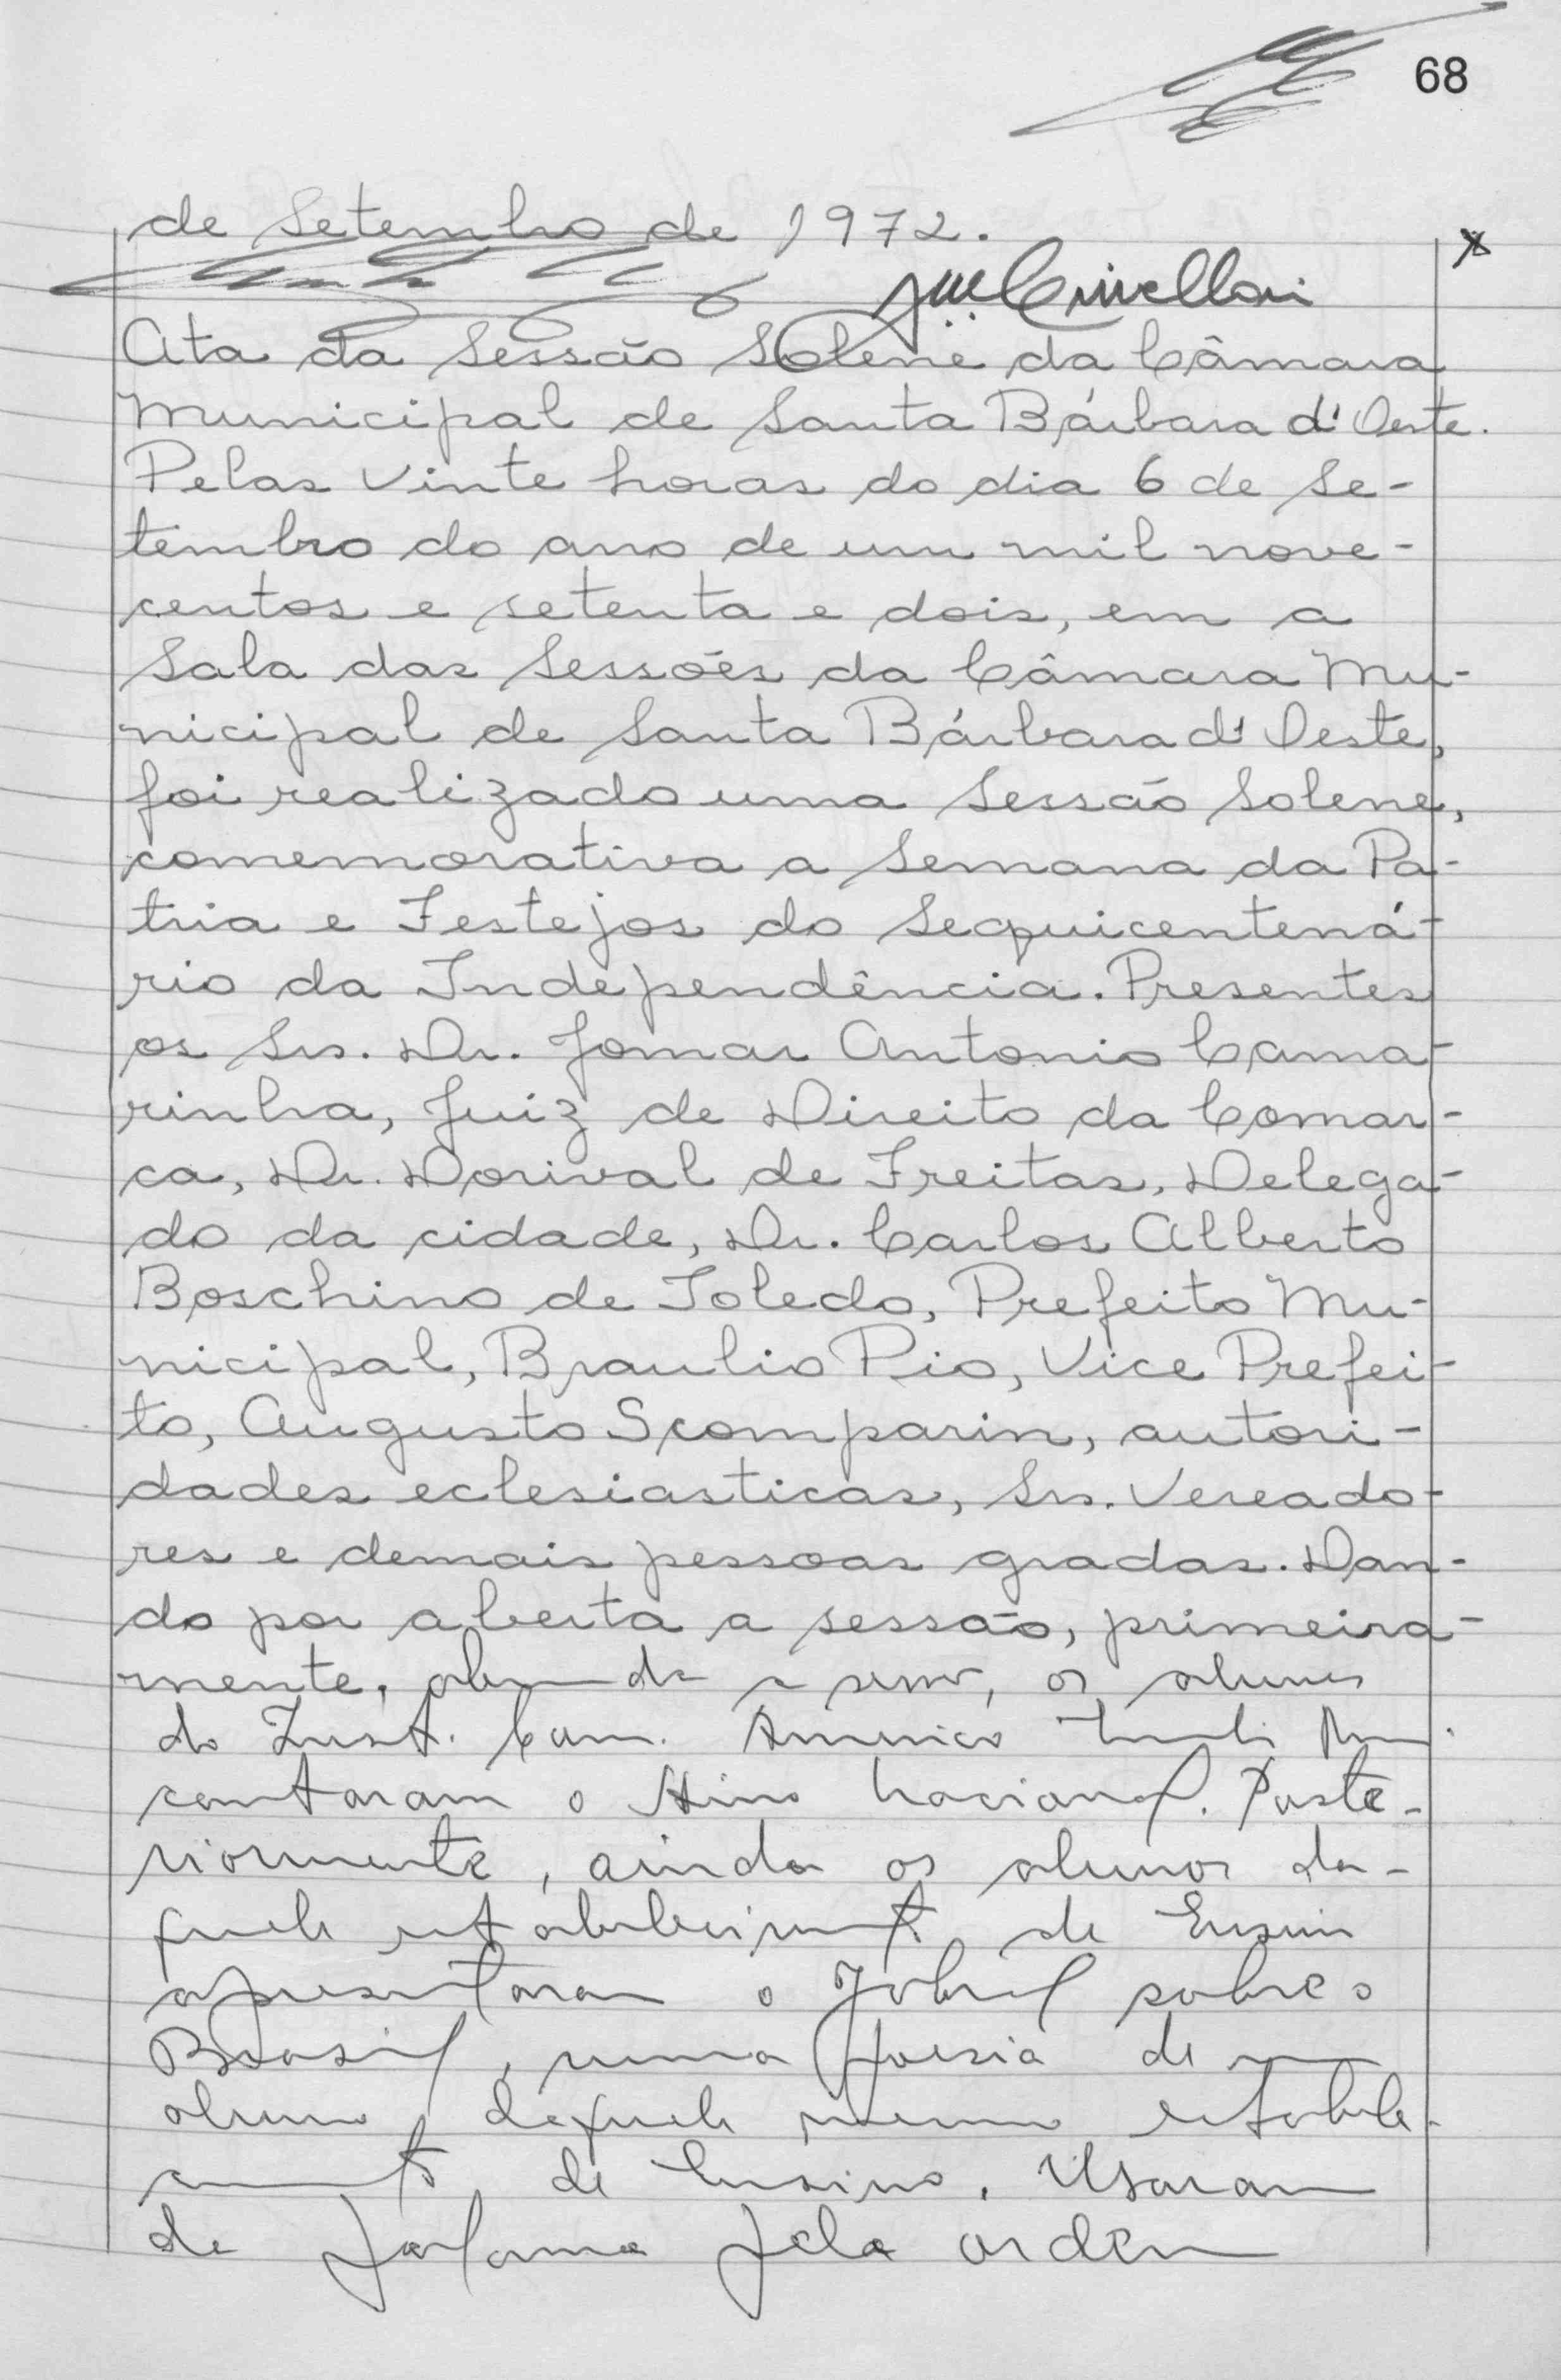 68
de Setembro de 1972.
Ata da Sessão Solene da Câmara
Municipal de Santa Bárbara d'Oeste.
Pelas vinte horas do dia 6 de Se-
tembro do ano de um mil nove-
centos e setenta e dois, em a
Sala das Sessões da Câmara Mu-
nicipal de Santa Bárbara d'Oeste,
foi realizado uma Sessão Solene,
comemorativa a Semana da Pá-
tria e Festejos do Sequicentená-
rio da Independência. Presentes
os Srs. Dr. Jomar Antonio Cama-
rinha, Juiz de Direito da Comar-
ca, Dr. Dorival de Freitas, Delega-
do da cidade, Dr. Carlos Alberto
Boschino de Toledo, Prefeito Mu-
nicipal, Braulio Pio, Vice Prefei-
to, Augusto Scomparin, autori-
dades eclesiasticas, Srs. Vereado-
res e demais pessoas gradas. Dan-
do por aberta a sessão, primeira-
mente, os alunos
do Inst. Com.
cantaram o Hino Nacional. Poste-
riormente, ainda os alunos da-
quele estabelecimento de Ensino
apresentaram o Jogral sobre o
Brasil, uma poesia de um
aluno daquele mesmo estabele-
cimento de Ensino. Usaram
de palavra pela ordem